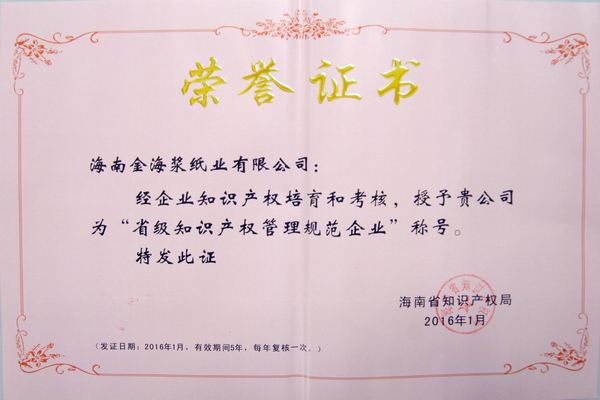 荣誉证书
海南金海浆纸业有限公司：
经企业知识产权培育和考核，授予贵公司
为“省级知识产权管理规范企业”称号。
特发此证
海南省知识产权局
2016年1月
（发证日期：2016年1月，有效期间5年，每年复核一次。）